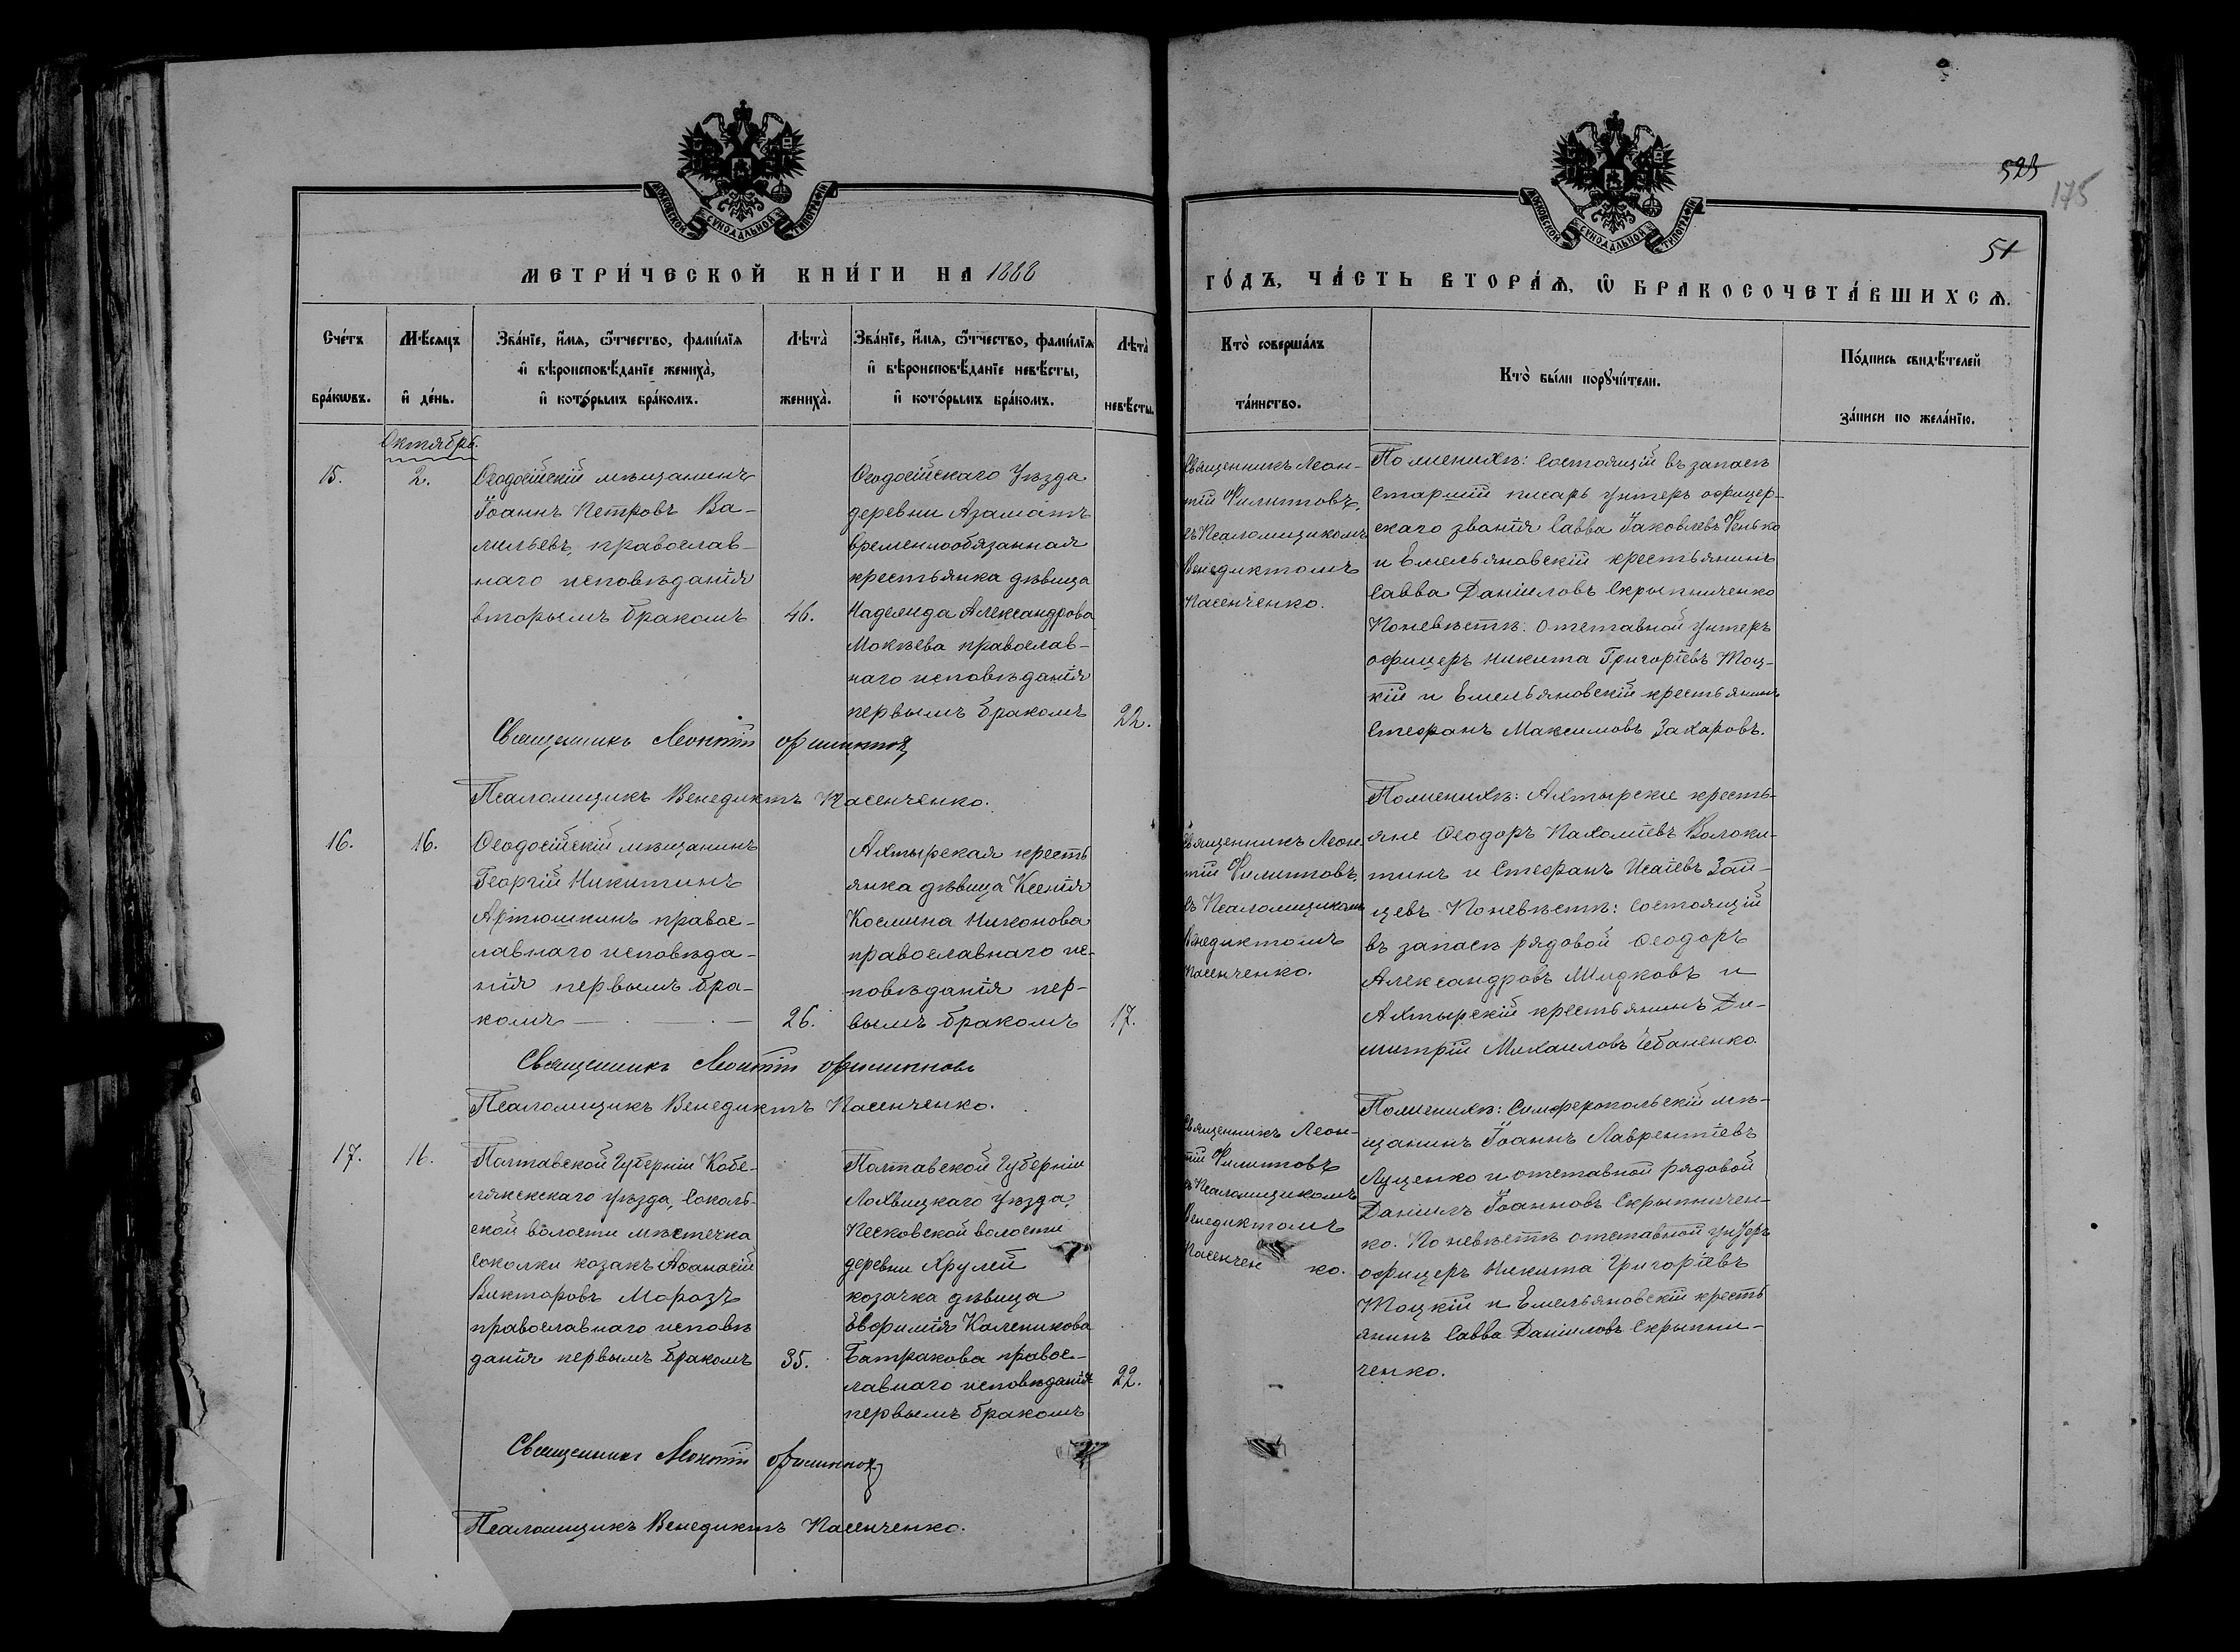 МОСКОВСКОЙ СѴНОДАЛЬНОЙ ТИПОГРАФІИ
МЕТРИ́ЧЕСКОЙ КНИ́ГИ НА 1888
Сче́тъ бра́кѡвъ.
Мѣ́сяцъ и҆ де́нь.
Зва́нїе, и҆́мя, ѻ҆́тчество, фами́лїя
и҆ вѣроисповѣ́данїе жениха̀,
и҆ кото́рымъ бра́комъ.
Лѣ́та̀ жениха̀.
Зва́нїе, и҆́мя, ѻ҆́тчество, фами́лїя
и҆ вѣроисповѣ́данїе невѣ́сты,
и҆ кото́рымъ бра́комъ.
Лѣ́та̀ невѣ́сты.
Октябрь.
15.
2.
Ѳеодосійскій мѣщанинъ
Іоаннъ Петровъ Ва-
сильевъ, православ-
наго исповѣданія
вторымъ бракомъ
46.
Ѳеодосійскаго Уѣзда
деревни Азаматъ
временнообязанная
крестьянка дѣвица
Надежда Александрова
Мокѣева православ-
наго исповѣданія
первымъ бракомъ
22.
Священникъ Леонтій Филиппов
Псаломщикъ Венедиктъ Пасенченко.
16.
16.
Ѳеодосійскій мѣщанинъ
Георгій Никитинъ
Артюшкинъ правос-
лавнаго исповѣда-
нія первымъ бра-
комъ
26.
Ахтырская кресть
янка дѣвица Ксенія
Космина Никонова
православнаго ис-
повѣданія пер-
вымъ бракомъ
17.
Священникъ Леонтій Филипповъ
Псаломщикъ Венедиктъ Пасенченко.
17.
16.
Полтавской Губерніи Кобе-
лякскскаго уѣзда, Соколь-
ской волости мѣстечка
Соколки козакъ Аѳанасій
Викторовъ Морозъ
православнаго исповѣ
данія первымъ бракомъ
35.
Полтавской Губерніи
Лохвицкаго уѣзда,
Песковской волости
деревни Хрулей
козачка дѣвица
Евфимія Каленикова
Батракова правос-
лавнаго исповѣданія
первымъ бракомъ
22.
Священникъ Леонтій Филиппов
Псаломщикъ Венедиктъ Пасенченко.
525
175
51
МОСКОВСКОЙ СѴНОДАЛЬНОЙ ТИПОГРАФІИ
ГО́ДЪ, ЧА́СТЬ ВТОРА́Ѧ, Ѡ҆ БРАКОСОЧЕТА́ВШИХСѦ.
Кто̀ соверша́лъ та́инство.
Кто̀ бы́ли порꙋчи́тели.
По́дпись свидѣ́телей за́писи по жела́нїю.
Священникъ Леон-
тій Филипповъ,
съ Псаломщикомъ
Венедиктомъ
Пасенченко.
По женихѣ: Состоящій въ запасѣ
старшій писарь унтеръ офицер-
скаго званія Савва Іаковлевъ Фенько
и Емельяновскій крестьянинъ
Савва Даниловъ Скрыпниченко
По невѣстѣ: Отставной унтеръ
офицеръ Никита Григоріевъ Тоц-
кій и Емельяновскій крестьянинъ
Стефанъ Максимовъ Захаровъ.
Священникъ Леон-
тій Филипповъ,
съ Псаломщикомъ
Венедиктомъ
Пасенченко.
По женихѣ: Ахтырскіе кресть-
яне Ѳеодоръ Пахоміевъ Волоки-
тинъ и Стефанъ Исаіевъ Зай-
цевъ. По невѣстѣ: Состоящій
въ запасѣ рядовой Ѳеодоръ
Александровъ Жидковъ и
Ахтырскій крестьянинъ Ди-
митрій Михаиловъ Чебаненко.
Священникъ Леон-
тій Филипповъ
съ Псаломщикомъ
Венедиктомъ
Пасенчен ко.
По женихѣ: Симферопольскій мѣ-
щанинъ Іоаннъ Лаврентіевъ
Луценко и отставной рядовой
Даніилъ Іоанновъ Скрыпничен-
ко. По невѣстѣ отставной унтеръ
офицеръ Никита Григоріевъ
Тоцкій и Емельяновскій кресть
янинъ Савва Даніиловъ Скрыпни-
ченко.